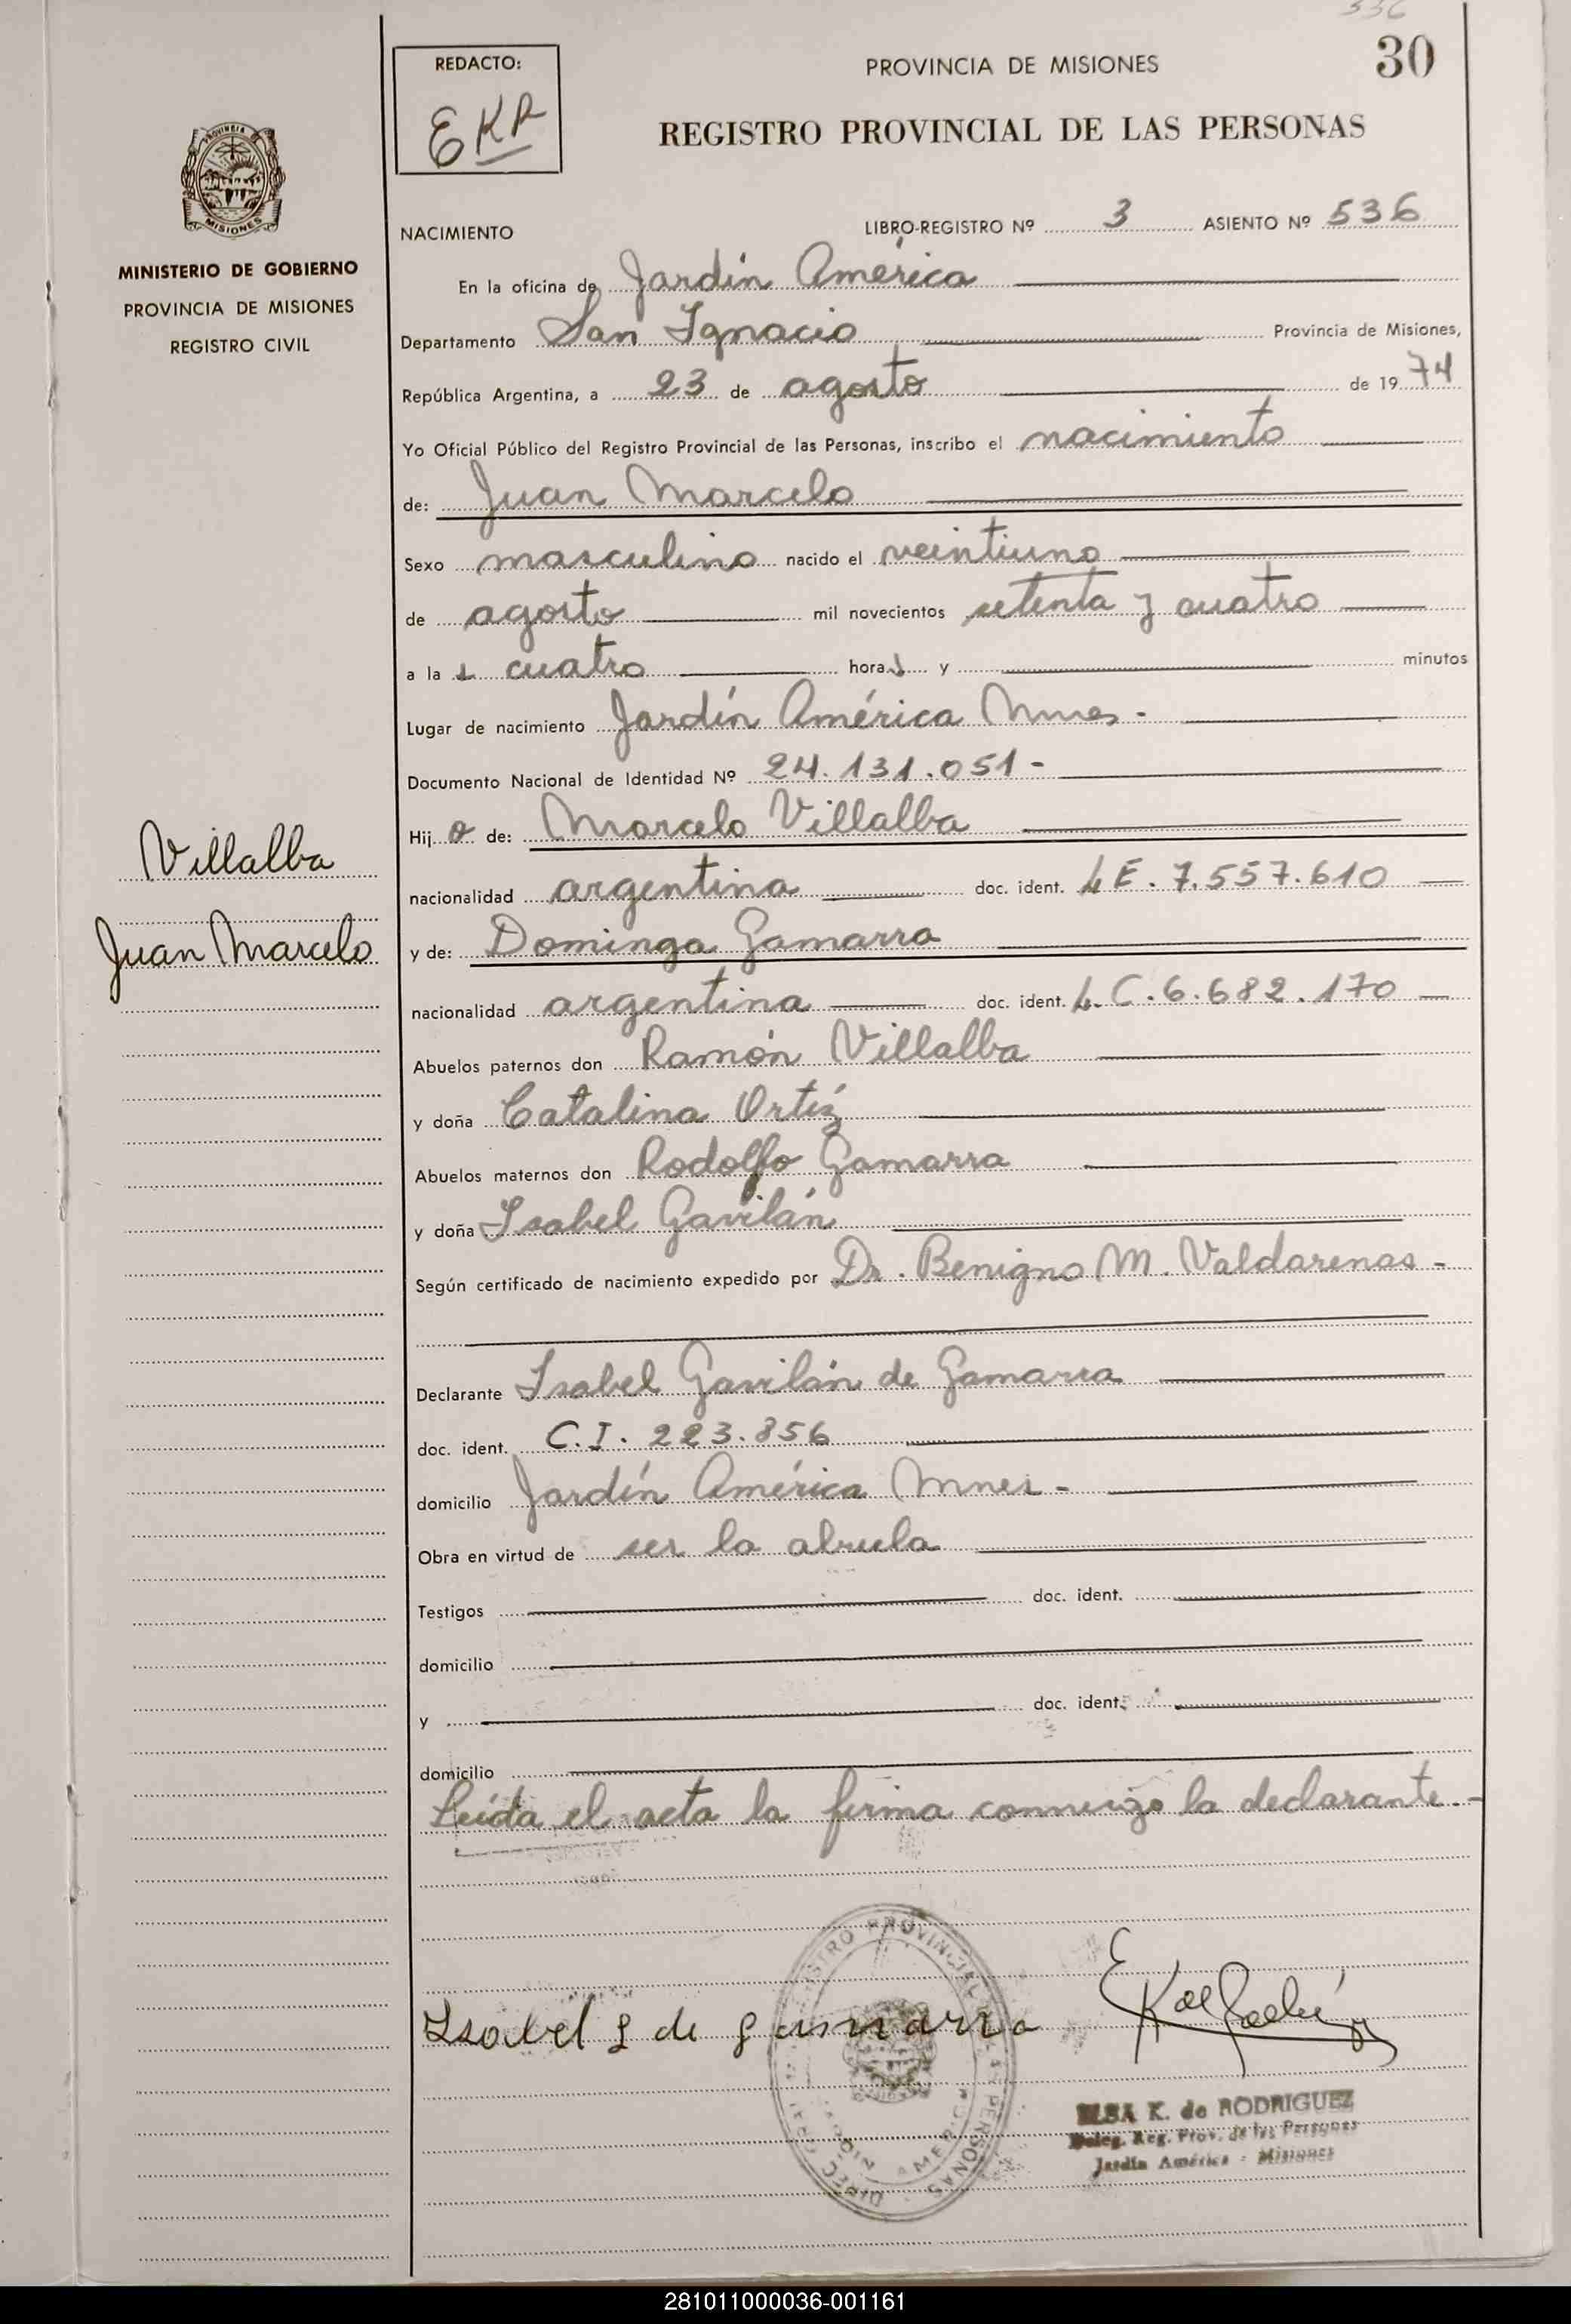 336
30
REDACTO:
EKR
PROVINCIA DE MISIONES
REGISTRO PROVINCIAL DE LAS PERSONAS
PROVINCIA DE
MISIONES
MINISTERIO DE GOBIERNO
PROVINCIA DE MISIONES
REGISTRO CIVIL
NACIMIENTO LIBRO-REGISTRO Nº 3 ASIENTO Nº 536
En la oficina de Jardín América
Departamento San Ignacio Provincia de Misiones,
República Argentina, a 23 de agosto de 1974
Yo Oficial Público del Registro Provincial de las Personas, inscribo el nacimiento
de: Juan Marcelo
Sexo masculino nacido el veintiuno
de agosto mil novecientos setenta y cuatro
a la s cuatro hora s y minutos
Lugar de nacimiento Jardín América Mnes.-
Documento Nacional de Identidad Nº 24.131.051-
Hij o de: Marcelo Villalba
Villalba
nacionalidad argentina doc. ident. LE. 7.557.610
Juan Marcelo
y de: Dominga Gamarra
nacionalidad argentina doc. ident. L.C.6.682.170
Abuelos paternos don Ramón Villalba
y doña Catalina Ortíz
Abuelos maternos don Rodolfo Gamarra
y doña Isabel Gavilán
Según certificado de nacimiento expedido por Dr. Benigno M. Valdarenas-
Declarante Isabel Gavilán de Gamarra
doc. ident. C.I. 223.856
domicilio Jardín América Mnes-
Obra en virtud de ser la abuela
Testigos doc. ident.
domicilio
y doc. ident.
domicilio
Leída el acta la firma conmigo la declarante.-
Isabel g de gamarra
REGISTRO PROVINCIAL DE LAS PERSONAS
JARDIN AMERICA
ELSA K. de RODRIGUEZ
Deleg. Reg. Prov. de las Personas
Jardín América - Misiones
281011000036-001161